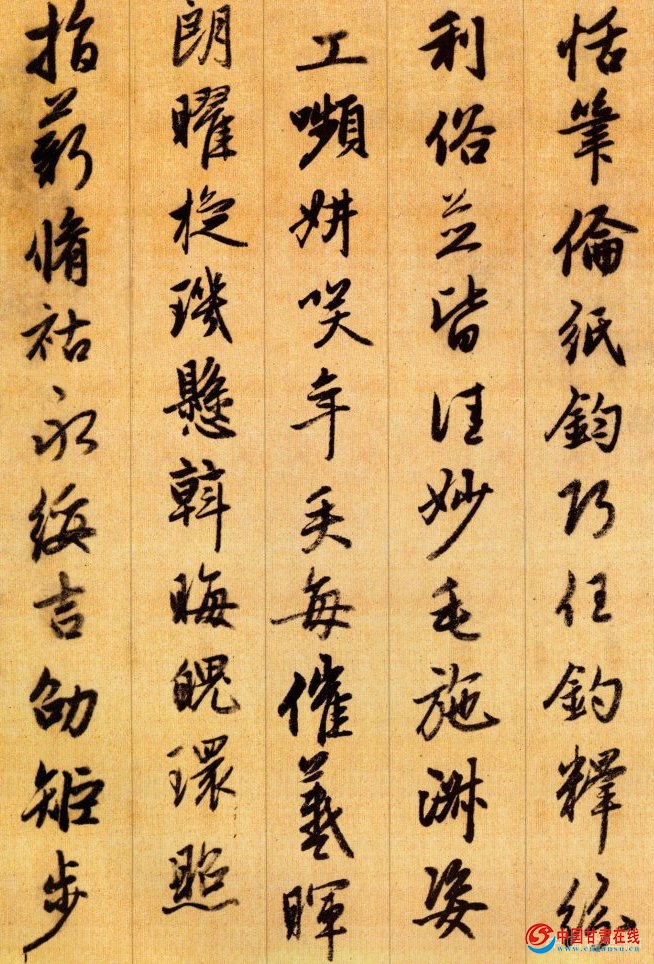 恬筆倫紙鈞巧任釣釋紛
利俗並皆佳妙毛施淑姿
工嚬妍咲年矢每催羲暉
朗曜旋璣懸斡晦魄環照
指薪脩祜永綏吉劭矩步
中国甘肃在线